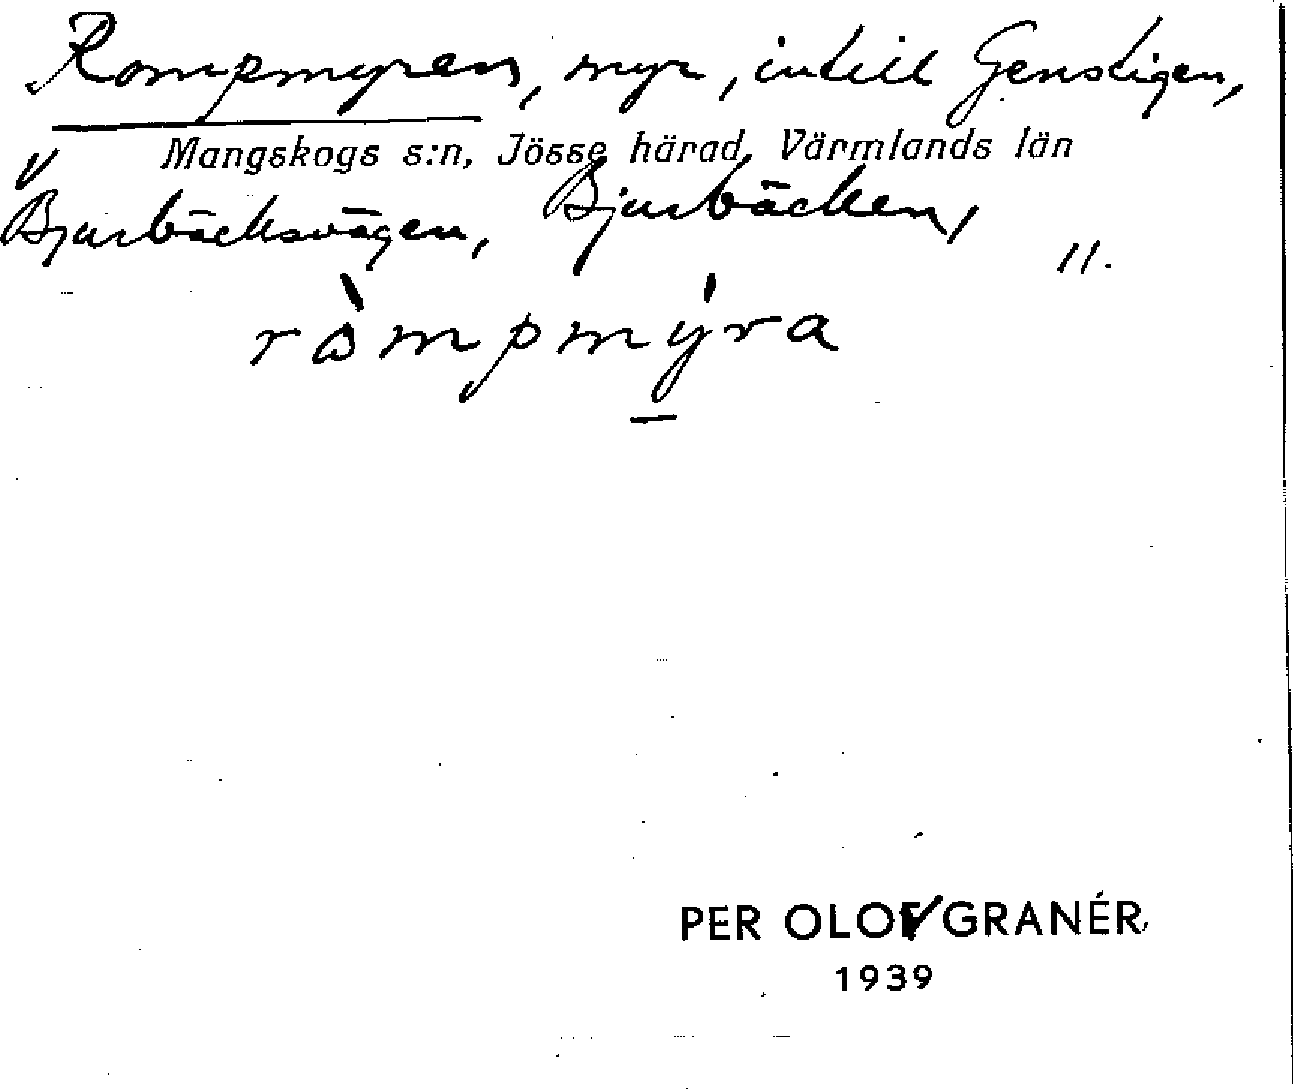 Rompmyren, myr, intill Genstigen,
Mangskogs s:n, Jösse härad, Värmlands län
Bjurbäcksvägen, Bjurbäcken,
11.
ròmpmýra
PER OLOF GRANÉR
1939